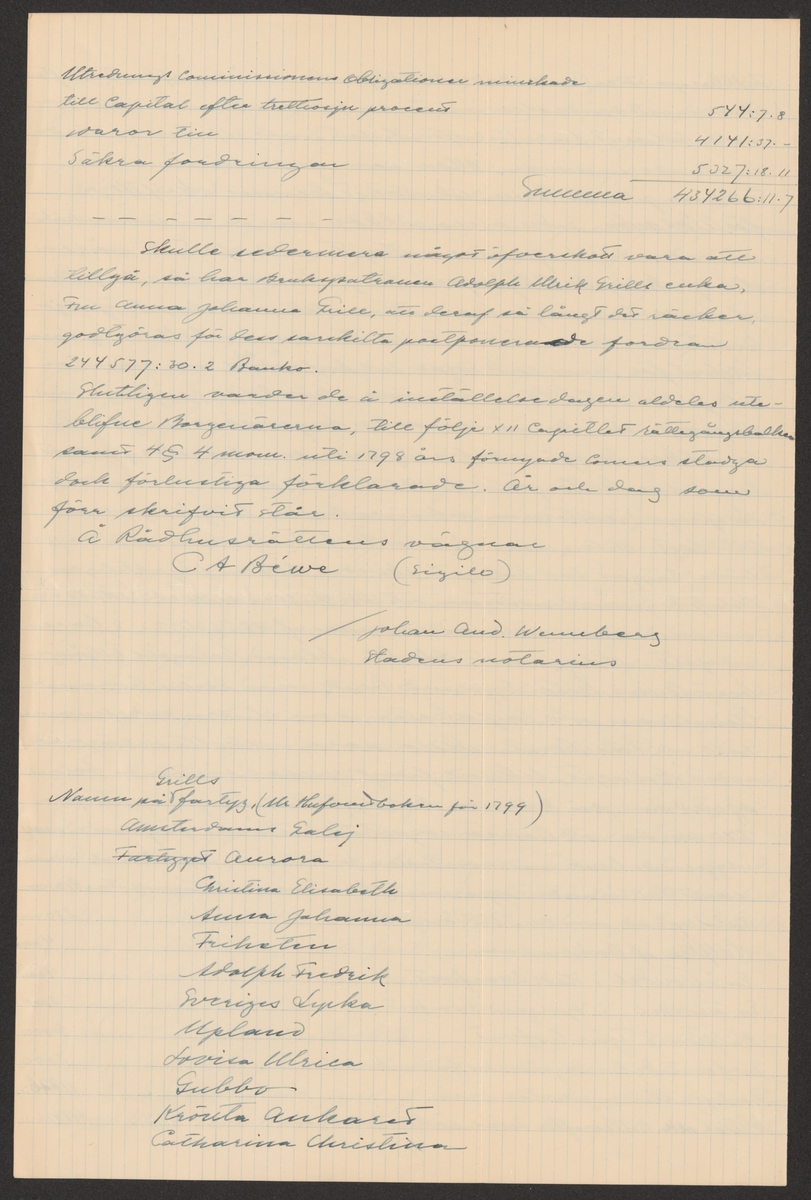 Utrednings Commissionens Obligationer minskade
till Capital efter trettiosju procent 544:7.8
varor till 4141:37.-
Säkra fordringar 5027:18.11
Summa 434266:11.7
— — — — — — —
Skulle sedermera något öfverskott vara att
tillgå, så har Brukspatronen Adolph Ulrik Grills enka,
Fru Anna Johanna Grill, att deraf så långt det räcker,
godtgöras för dess särskilta postponerade fordran
244577:30.2 Banko.
Slutligen varder de å inställelsedagen aldeles ute-
blifne Borgenärerna, till följe XII Capitlet rättegångsbalken
samt 4 § 4 mom. uti 1798 års förnyade Concurs stadga
dock förlustiga förklarade. År och dag som
förr skrifvit står.
Å Rådhusrättens vägnar
C A Béwe (Sigill)
/Johan And. Wenneberg
Stadens notarius
Grills
Namn på fartyg, (Ur Hufvudboken för 1799)
Amsterdams Galej
Fartyget Aurora
Christina Elisabeth
Anna Johanna
Friheten
Adolph Fredrik
Sveriges Lycka
Upland
Lovisa Ulrica
Gubbo
Krönta Ankaret
Catharina Christina